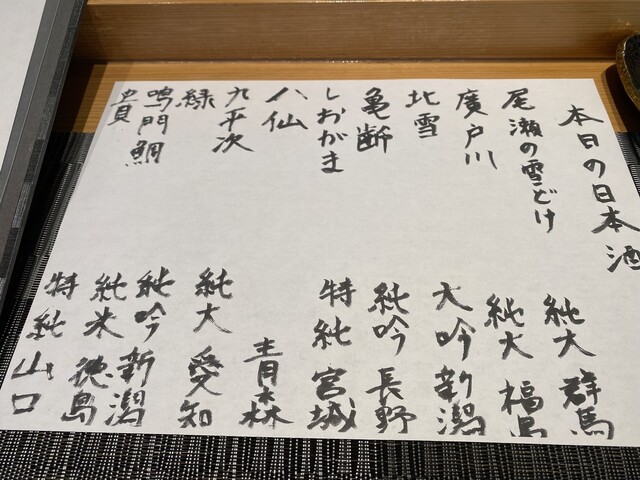 本日の日本酒
尾瀬の雪どけ 純大 群馬
廣戸川 純大 福島
北雪 大吟 新潟
亀齢 純吟 長野
しおがま 特純 宮城
八仙 青森
九平次 純大 愛知
緑 純吟 新潟
鳴門鯛 純米 徳島
貴 特純 山口